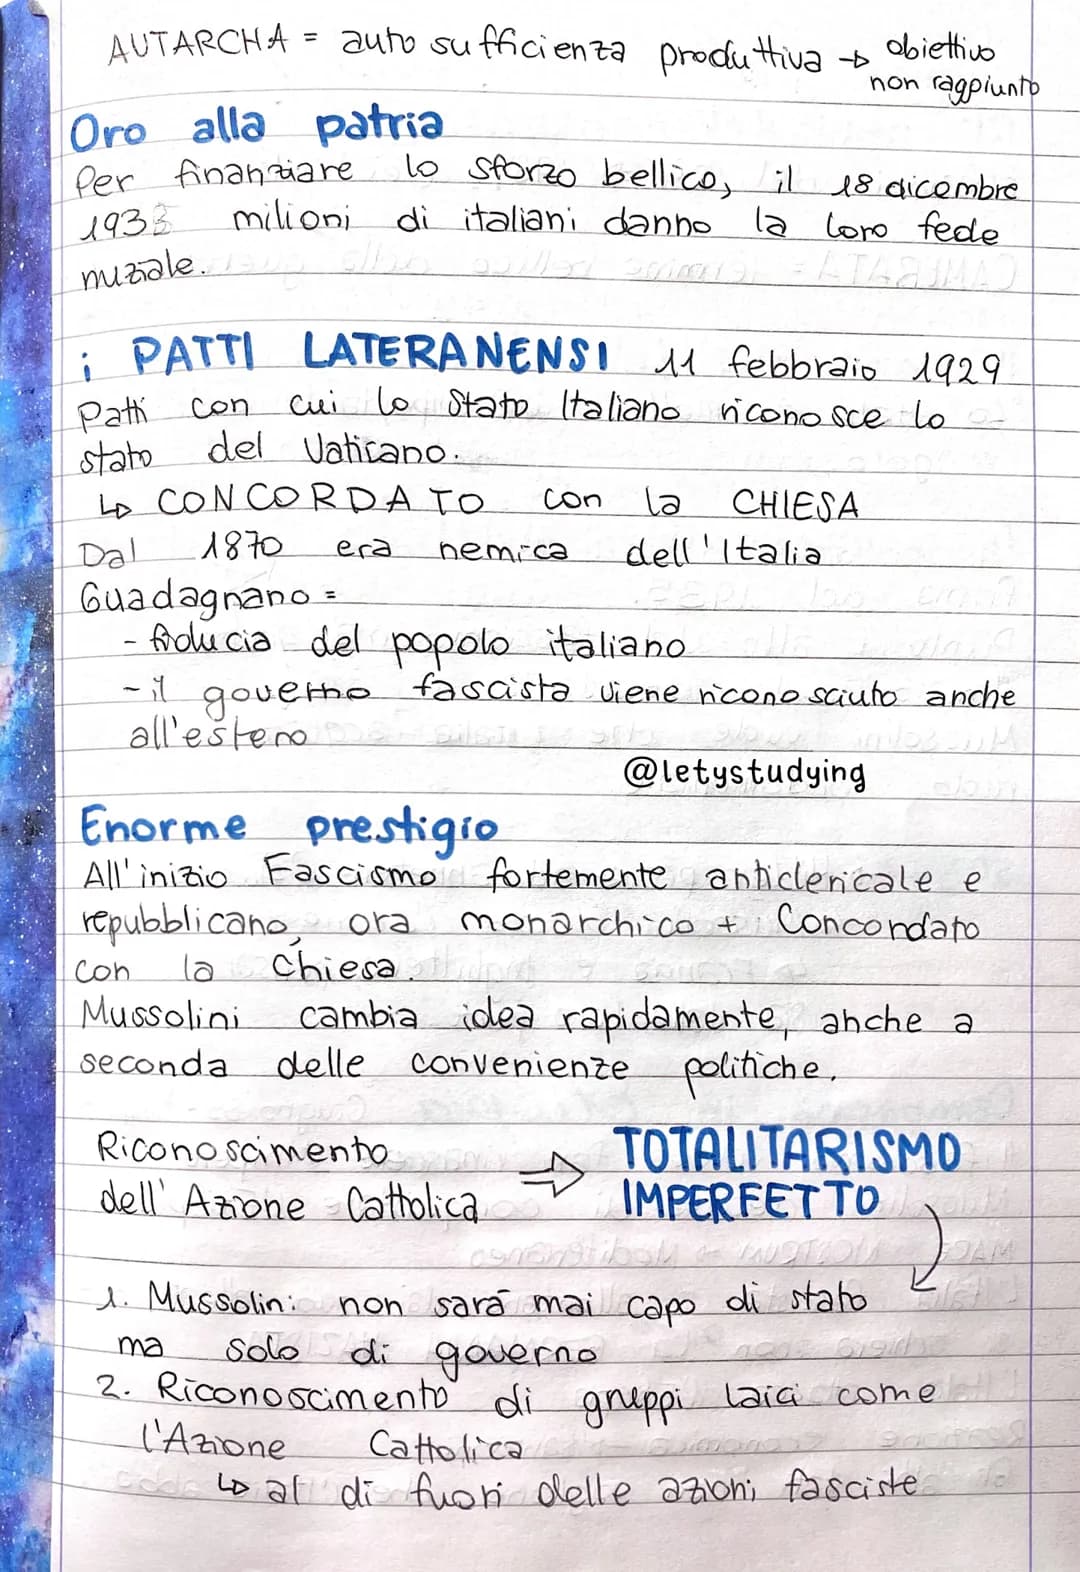 AUTARCHA = auto sufficienza produttiva → obiettivo
non raggiunto
Oro alla patria
Per finanziare lo sforzo bellico, il 18 dicembre
milioni di italiani danno la loro fede
nuziale.
i PATTI LATERANENSI 11 febbraio 1929
Patti con cui lo Stato Italiano riconosce lo
stato del Vaticano.
↳ CONCORDATO con la CHIESA
Dal 1870 era nemica dell'Italia
Guadagnano =
- fiducia del popolo italiano
- il governo fascista viene riconosciuto anche
all'estero
@letystudying
Enorme prestigio
All'inizio Fascismo fortemente anticlericale e
repubblicano, ora monarchico + Concordato
con la Chiesa.
Mussolini cambia idea rapidamente, anche a
seconda delle convenienze politiche.
Riconoscimento
dell'Azione Cattolica ⇒ TOTALITARISMO
IMPERFETTO
1. Mussolini non sarà mai capo di stato
ma solo di governo
2. Riconoscimento di gruppi laici come
l'Azione Cattolica
↳ al di fuori delle azioni fasciste